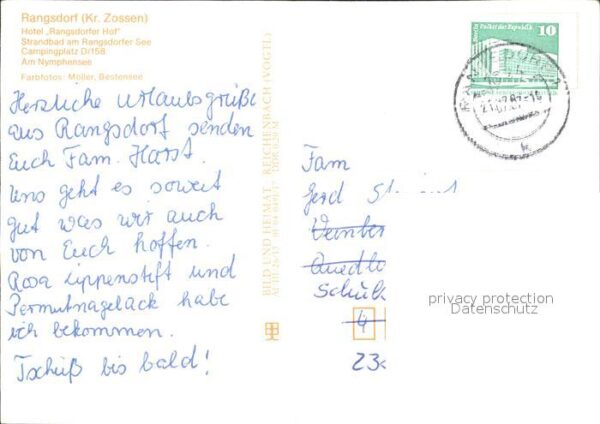 Rangsdorf (Kr. Zossen)
Hotel „Rangsdorfer Hof"
Strandbad am Rangsdorfer See
Campingplatz D/158
Am Nymphensee
Farbfotos: Möller, Bestensee
Herzliche Urlaubsgrüße
aus Rangsdorf senden
Euch Fam. Harst.
Uns geht es soweit
gut was wir auch
von Euch hoffen.
Rosa Lippenstift und
Permutnagelack habe
ich bekommen.
Tschüß bis bald!
BILD UND HEIMAT REICHENBACH (VOGTL)
Palast der Republik
10
Fam
Gerd
Quedl
Schul
4
23
privacy protection
Datenschutz